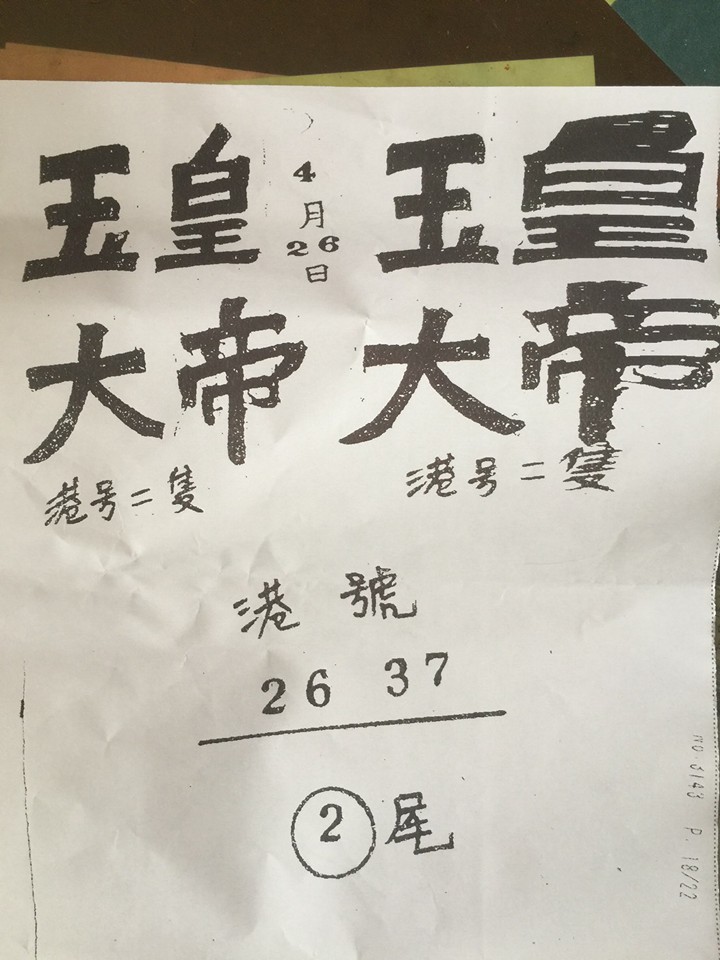 玉皇
大帝
港号二隻
4
月
26
日
玉皇
大帝
港号二隻
港號
26 37
2尾
NO.5143 P. 18/22